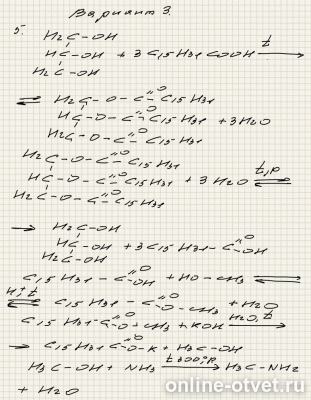 Вариант 3.
5.
H2C-OH
HC-OH + 3 C15H31COOH t →
H2C-OH
⇌ H2C-O-C=O C15H31
HC-O-C=O C15H31 + 3H2O
H2C-O-C=O C15H31
H2C-O-C=O C15H31
HC-O-C=O C15H31 + 3 H2O t,p ⇌
H2C-O-C=O C15H31
→ H2C-OH
HC-OH + 3 C15H31-C=O-OH
H2C-OH
C15H31-C=O-OH + HO-CH3 ⇌
H,+ t ⇌ C15H31-C=O-O-CH3 + H2O
C15H31-C=O-O-CH3 + KOH H2O, t →
→ C15H31C=O-O-K + H3C-OH
H3C-OH + NH3 t 300°, p → H3C-NH2
+ H2O
online-otvet.ru